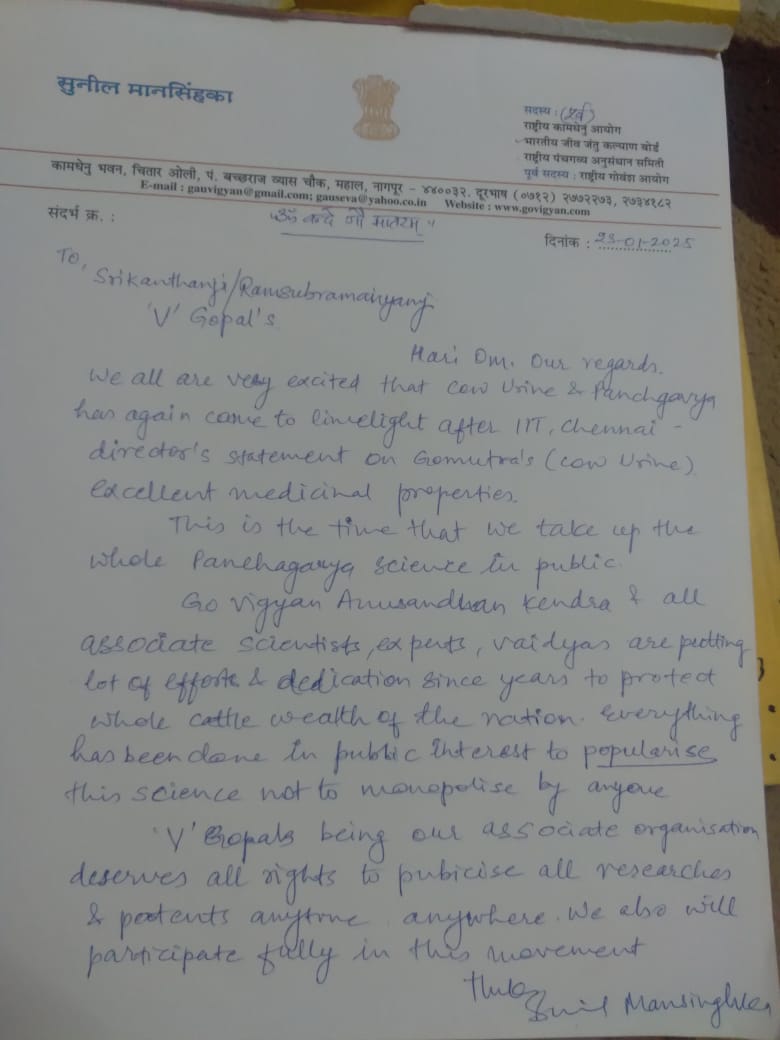 सुनील मानसिंहका
सदस्य : (पूर्व)
राष्ट्रीय कामधेनु आयोग
भारतीय जीव जंतु कल्याण बोर्ड
राष्ट्रीय पंचगव्य अनुसंधान समिती
पूर्व सदस्य : राष्ट्रीय गोवंश आयोग
कामधेनु भवन, चितार ओली, पं. बच्छराज व्यास चौक, महाल, नागपूर - ४४००३२. दूरभाष (०७१२) २७७२२७३, २७३४१८२
E-mail : gauvigyan@gmail.com; gauseva@yahoo.co.in Website : www.govigyan.com
संदर्भ क्र. :
"ॐ वन्दे गौ मातरम्"
दिनांक : 23-01-2025
To,
Srikanthanji/Ramsubramaniyanji
'V' Gopal's
Hari Om. Our regards.
We all are very excited that Cow Urine & Panchgavya
has again come to limelight after IIT, Chennai -
director's statement on Gomutra's (Cow Urine)
excellent medicinal properties.
This is the time that we take up the
whole Panchagavya science in public.
Go Vigyan Anusandhan Kendra & all
associate scientists, experts, vaidyas are putting
lot of efforts & dedication since years to protect
whole cattle wealth of the nation. Everything
has been done in public interest to popularise
this science not to monopolise by anyone
'V' Gopals being our associate organisation
deserves all rights to pubicise all researches
& patents anytime anywhere. We also will
participate fully in this movement
Sunil Mansinghka